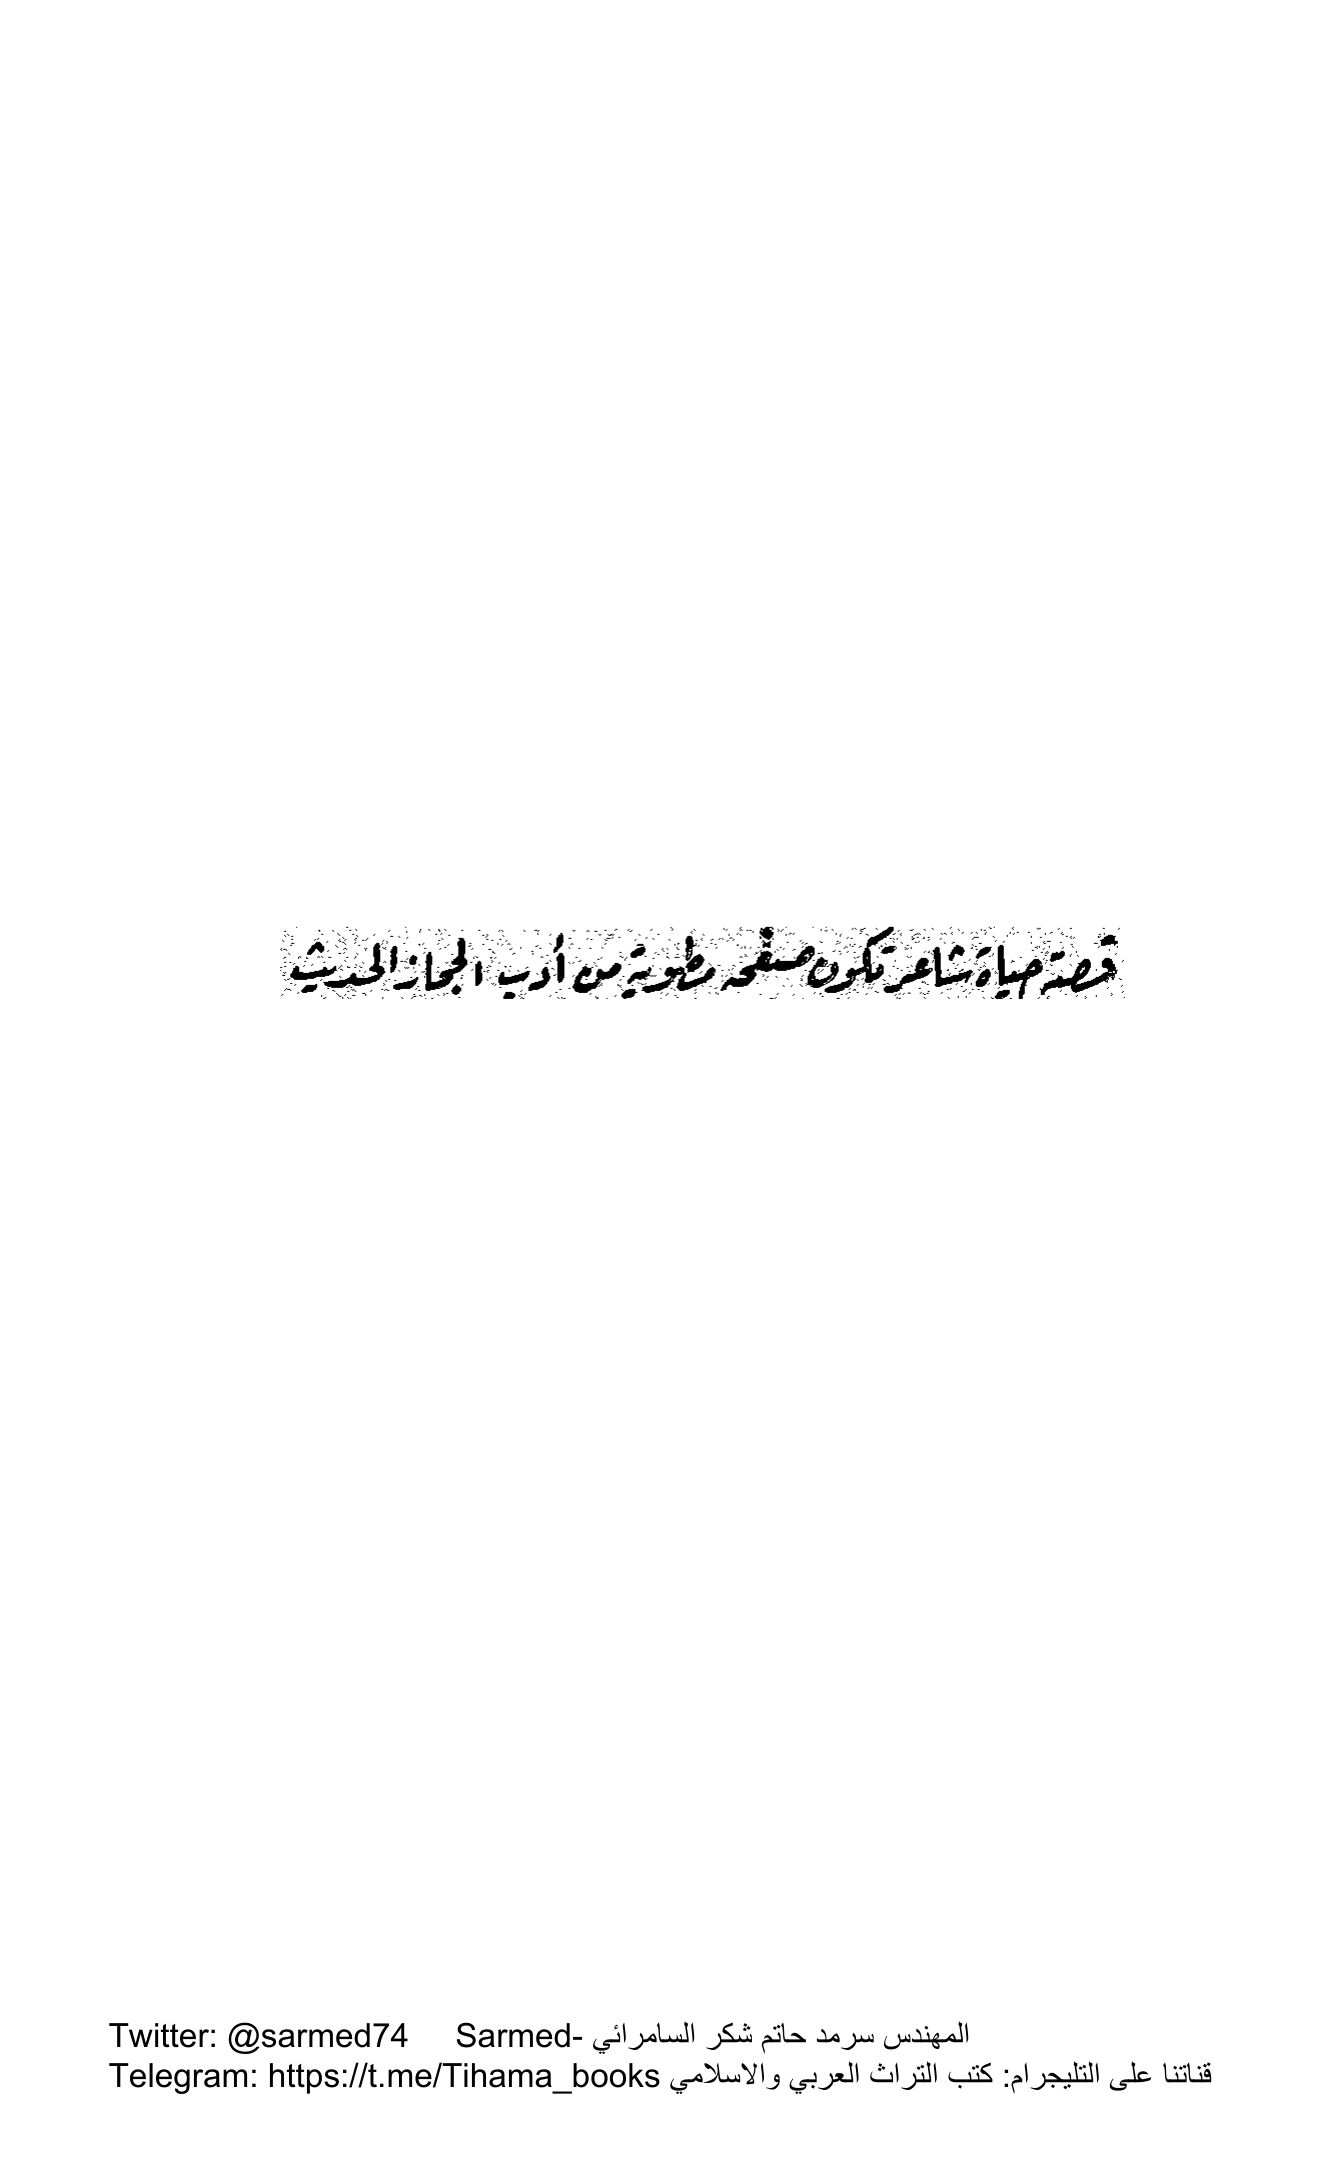 قصة حياة شاعر تكون صفحة مطوية من أدب الحجاز الحديث
Twitter: @sarmed74 Sarmed- المهندس سرمد حاتم شكر السامرائي
Telegram: https://t.me/Tihama_books قناتنا على التليجرام: كتب التراث العربي والاسلامي